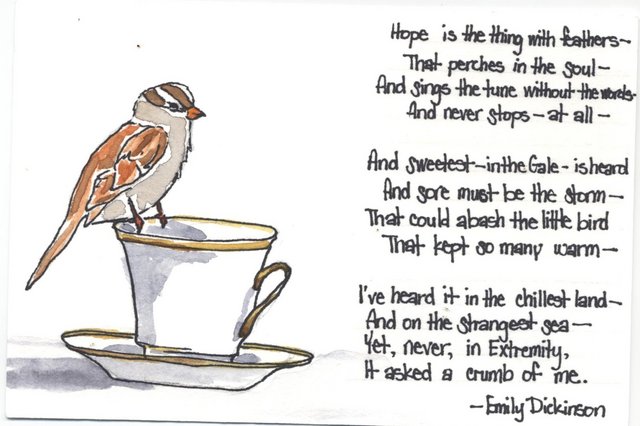 Hope is the thing with feathers—
That perches in the soul—
And sings the tune without the words-
And never stops—at all—
And sweetest—in the Gale-is heard
And sore must be the storm—
That could abash the little bird
That kept so many warm—
I've heard it in the chillest land—
And on the strangest sea—
Yet, never, in Extremity,
It asked a crumb of me.
—Emily Dickinson